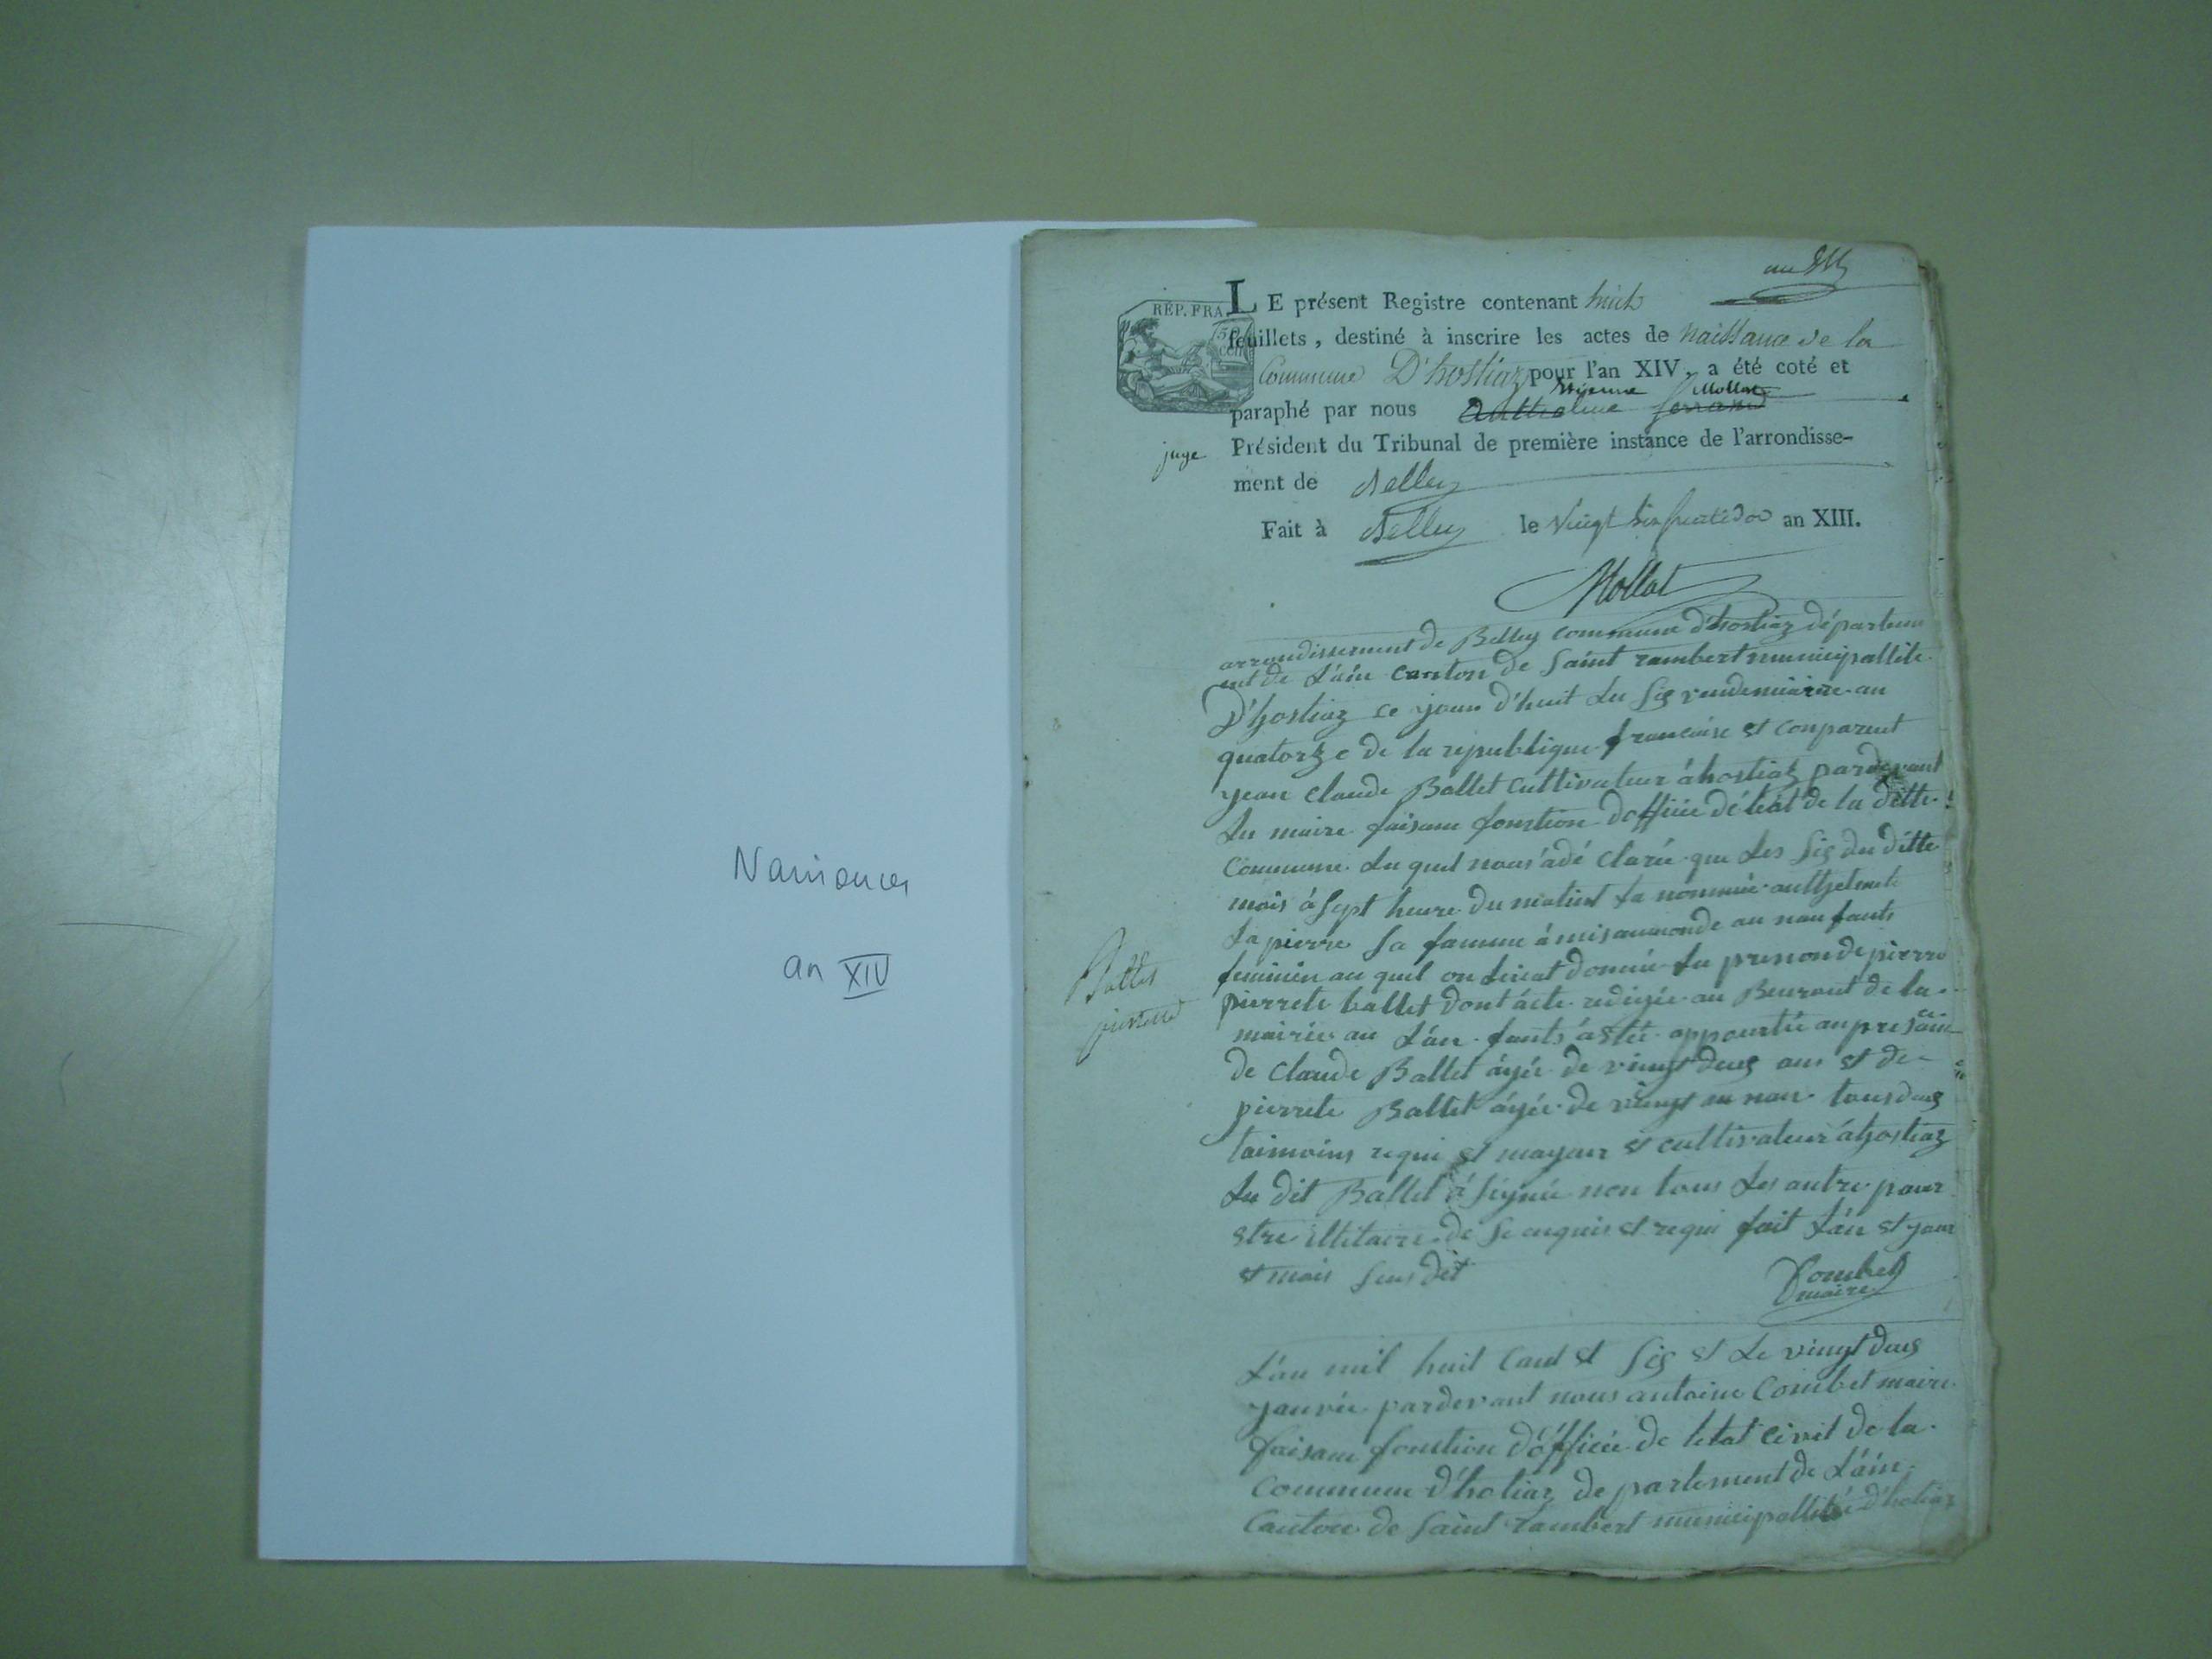 Naissances
an XIV
an XIV
RÉP. FRA.
LE présent Registre contenant huit
feuillets, destiné à inscrire les actes de naissance de la
Commune D'hostiaz pour l'an XIV, a été coté et
Mollat
paraphé par nous Anthelme ferrand
juge
Président du Tribunal de première instance de l'arrondisse-
ment de Belley
Fait à Belley le Vingt six fructidor an XIII.
Mollat
arrondissement de Belley commune d'hostiaz départem
ent de L'ain canton de saint rambert municipallité
D'hostiaz ce jour d'huit Lu six vendemiaire an
quatorze de la republique francaise et comparut
jean claude Ballet cultivateur á hostiaz pardevant
Lu maire faisant fonction d'officié de létat de la ditte
Commune Lu quel nous á dé clarée que Les six du ditte
mois á sept heure du matint La nommée anthelmete
Lapierre sa famme á mis au monde au nan fants
feminin au quel on Luiat donnée Lu prenon de pierre
Ballet
pierrette
pierrete ballet dont ácte redigée au Beuraut de la
mairie au L'an fants á stée apportée
de claude Ballet ágée de vingt deux ans et de
pierrete Ballet ágée de vingt un nan tous deux
taimoins requi et mageur et cultivateur á hostiaz
Lu dit Ballet á signée non tous Les autre pour
stre illitaire de se enquis et requi fait L'an et jour
et mois sus dit
Combet
maire
L'an mil huit Cant et six et Le vingt deux
janvié pardevant nous antoine Combet maire
faisant fonction d'officié de letat civil de la
Commune d'hotiaz de partement de L'ain
Canton de saint rambert municipallité d'hotiaz